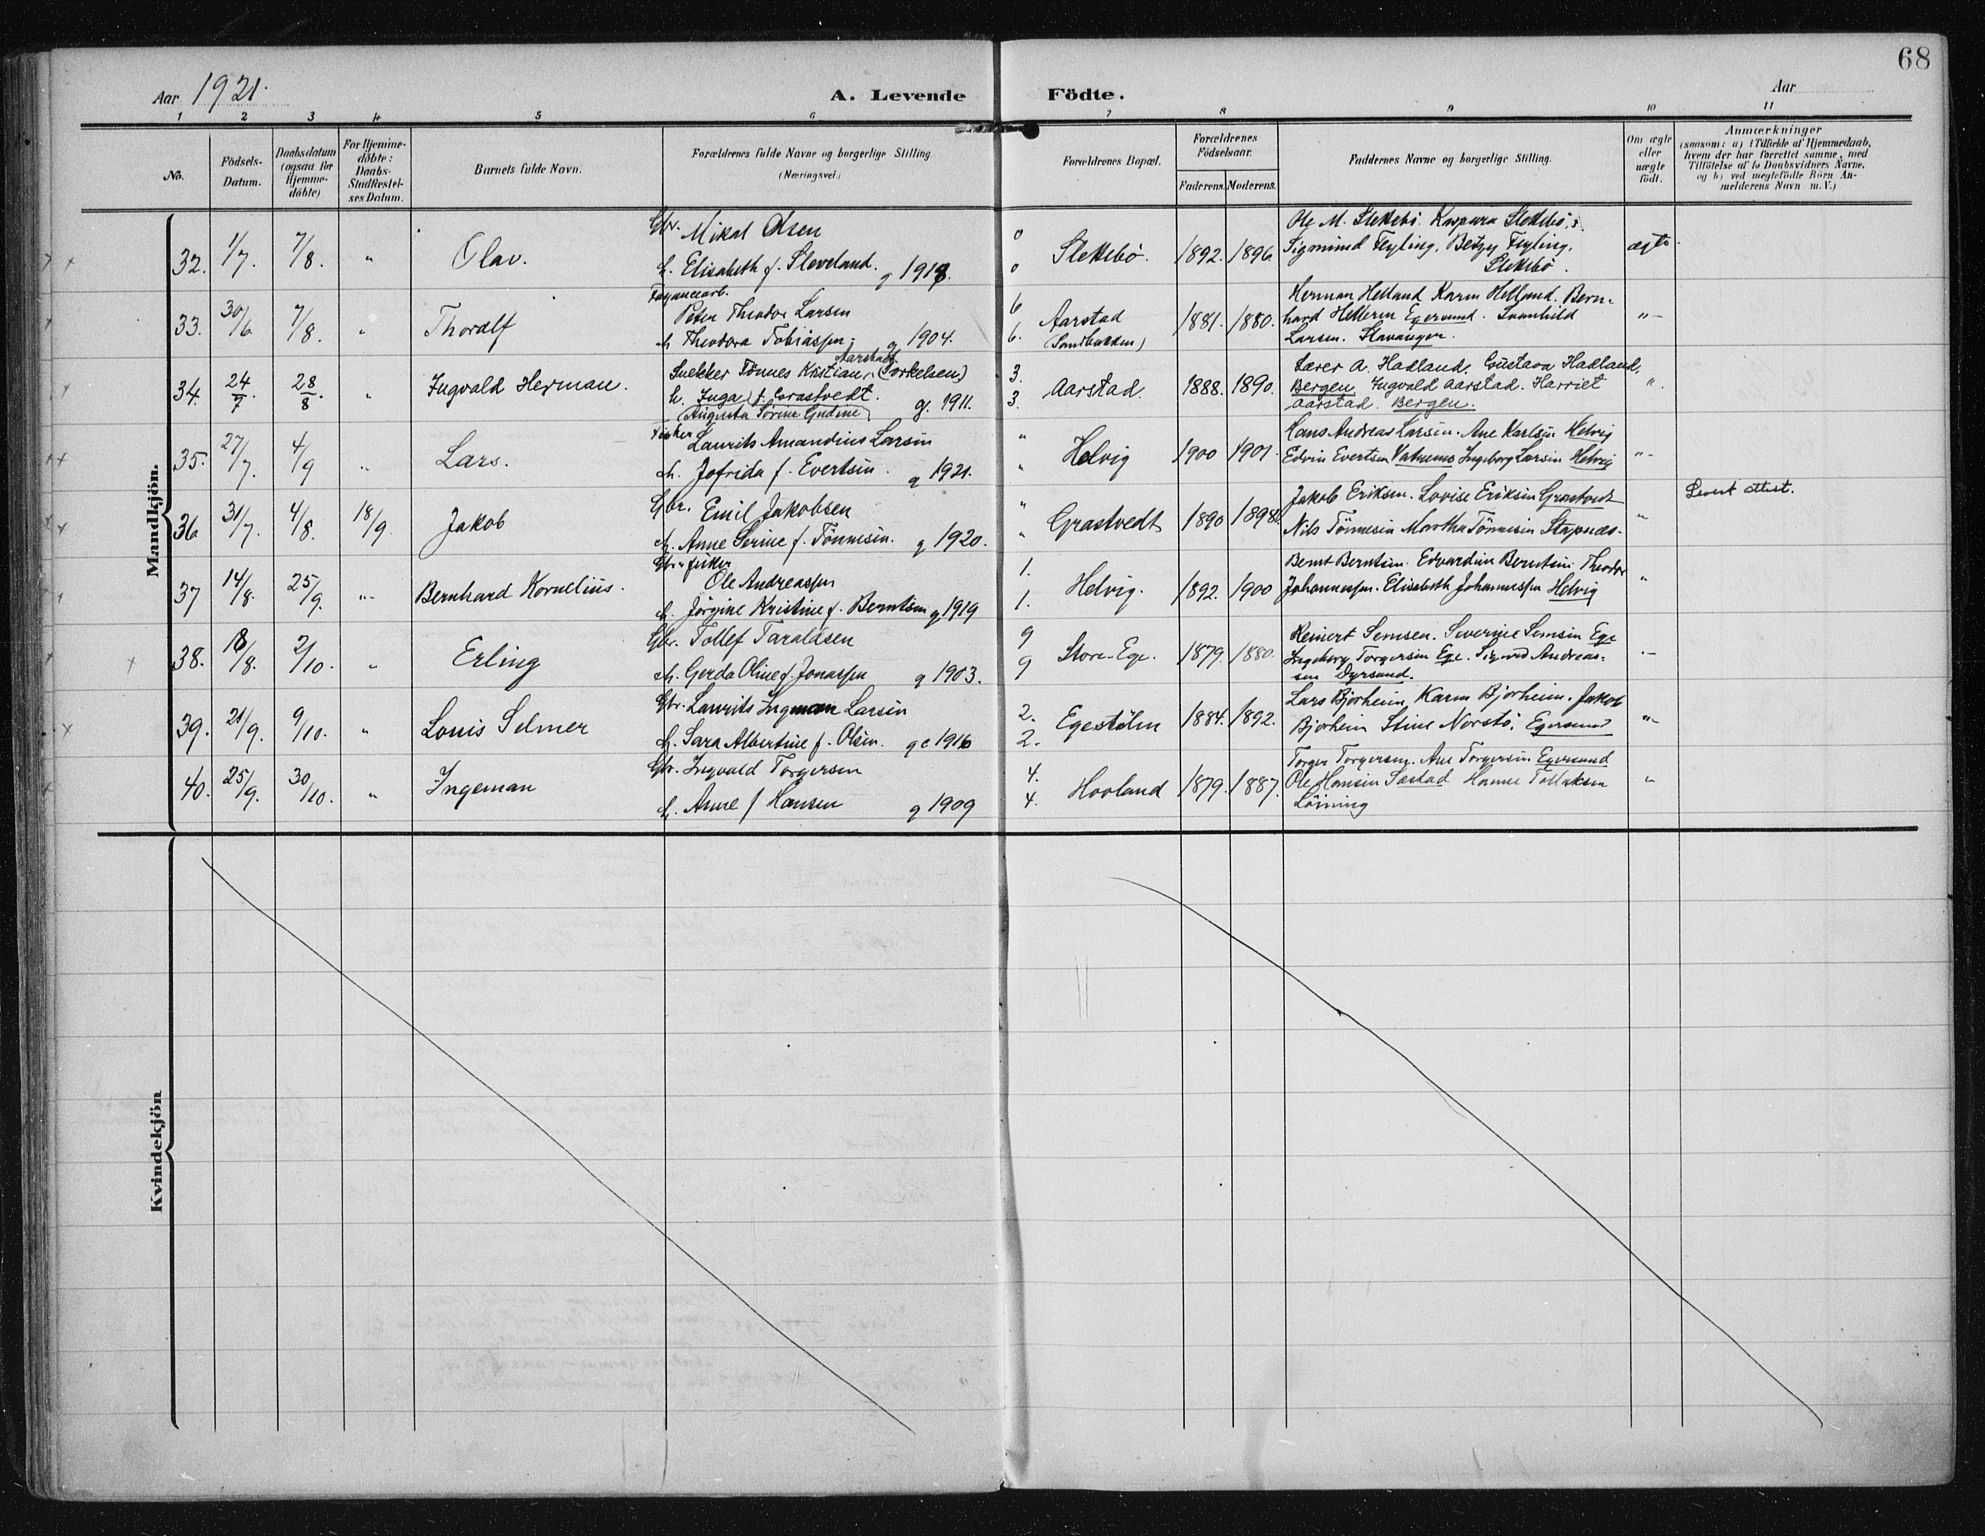 68
Aar 1921.
A. Levende Födte.
Aar
1 2 3 4 5 6 7 8 9 10 11
No.
Födsels-Datum.
Daabsdatum (ogsaa for Hjemmedöbte)
For Hjemmedöbte: Daabs-Stadfæstelses Datum.
Barnets fulde Navn.
Forældrenes fulde Navne og borgerlige Stilling
(Næringsvei.)
Forældrenes Bopæl.
Forældrenes Födselsaar.
Faderens. Moderens.
Faddernes Navne og borgerlige Stilling.
Om ægte eller uægte födt.
Anmærkninger
(saasom: a) i Tilfælde af Hjemmedaab,
hvem der har forrettet samme, med
Tilföielse af to Daabsvidners Navne,
og b) ved uegtefödte Börn An-
melderens Navn m. V.)
Mandkjön.
32. 1/7. 7/8. " Olav.
Gbr. Mikal Olsen
h. Elisabeth f. Sleveland. g 1918.
0 0 Slettebö. 1892. 1896.
Ole M. Slettebö. Kaspara Slettebö.
Sigmund Feyling, Betzy Feyling,
Slettebö.
ægte.
33. 30/6 7/8. " Thoralf
Fayancearb.
Peter Theodor Larsen
h Theodora Tobiassen; g 1904.
6 6. Aarstad
(Sandbakken)
1881. 1880.
Herman Helland Karen Helland. Bern-
hard Egersund. Svanhild
Larsen. Stavanger.
"-
34. 24/7 28/8. " Ingvald Herman.
Snekker Tönnes Kristian Aarstad (Torkelsen)
h. Inga f. Grastvedt.
(Augusta Sorine Gudine) g. 1911.
3. 3. Aarstad. 1888. 1890.
Lærer A. Hadland, Gustava Hadland,
Bergen Ingvald Aarstad. Harriet
Aarstad. Bergen.
".
35. 27/7. 4/9 " Lars.
Fisker
Laurits Amandius Larsen
h. Jofrida f. Evertsen. g 1921.
" " Helvig 1900 1901.
Hans Andreas Larsen. Ane Karlsen Helvig
Edvin Evertsen Ingeborg Larsen Helvig
"-
36 31/7. 4/8. 18/9 Jakob
Gbr. Emil Jakobsen
h. Anne Serine f. Tönnesen. g 1920.
" " Grastvedt 1890 1898.
Jakob Eriksen. Lovise Eriksen Grastvedt
Nils Tönnesen Martha Tönnesen Stapnæs-
"
Levert attest.
37 14/8. 25/9. "- Bernhard Kornelius.
Gbr fisker
Ole Andreassen
h. Jörgine Kristine f. Berntsen g 1919
1. 1. Helvig. 1892. 1900
Bernt Berntsen. Edvardine Berntsen Theodor
Johannessen. Elisabeth Johannessen Helvig
"
38. 18/8. 2/10. " Erling
Gbr. Tollef Taraldsen
h. Gerda Oline f. Jonassen g 1903.
9 9 Store-Ege. 1879. 1880.
Reinert Semsen. Severine Semsen Ege
Ingeborg Torgersen Ege. Sigurd Andreas-
sen Dyrsand.
"-
39. 21/9. 9/10. " Louis Selmer
Gbr. Laurits Ingman Larsen
h. Sara Albertine f. Olsen. g 1916
2. 2. Egestölen 1884. 1892.
Lars Bjorheim, Karen Bjorheim. Jakob
Bjorheim Stine Norstö. Egersund
"-
40. 25/9. 30/10. " Ingeman
Gbr. Ingvald Torgersen
h. Anne f Hansen g 1909
4. 4. Hovland 1879. 1887.
Torger Torgersen. Ane Torgersen Egersund
Ole Hansen Sæstad Hanne Tollaksen
Löining
"
Kvindekjön